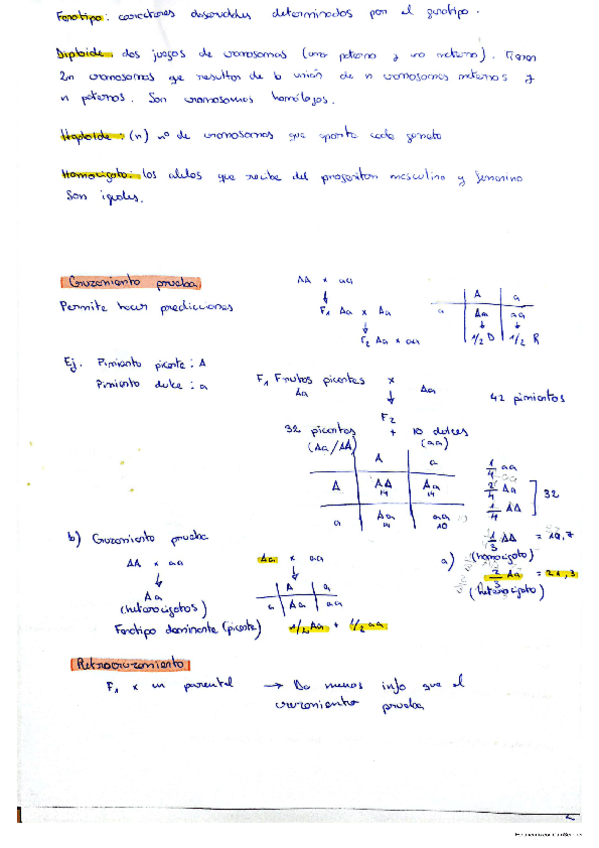 Fenotipo: caracteres observables determinados por el genotipo.
Diploide: dos juegos de cromosomas (uno paterno y uno materno). Tienen
2n cromosomas que resultan de la unión de n cromosomas maternos y
n paternos. Son cromosomas homólogos.
Haploide: (n) nº de cromosomas que aporta cada gameto
Homocigoto: los alelos que recibe del progenitor masculino y femenino
son iguales.
Cruzamiento prueba
Permite hacer predicciones
AA x aa
F1 Aa x Aa
F2 Aa x aa
A a
a Aa aa
1/2 D 1/2 R
Ej. Pimiento picante: A
Pimiento dulce: a
F1 Frutos picantes x Aa
Aa
F2
42 pimientos
32 picantes + 10 dulces
(Aa/AA) (aa)
A a
A AA Aa
14 14
a Aa aa
14 10
1/4 aa
2/4 Aa
1/4 AA
32
a) 1/3 AA = 10,7
(homocigoto)
2/3 Aa = 21,3
(heterocigoto)
b) Cruzamiento prueba
AA x aa
Aa
(heterocigotos)
Fenotipo dominante (picante)
Aa x aa
A a
a Aa aa
1/2 Aa + 1/2 aa
Retrocruzamiento
F1 x un parental → Da menos info que el
cruzamiento prueba